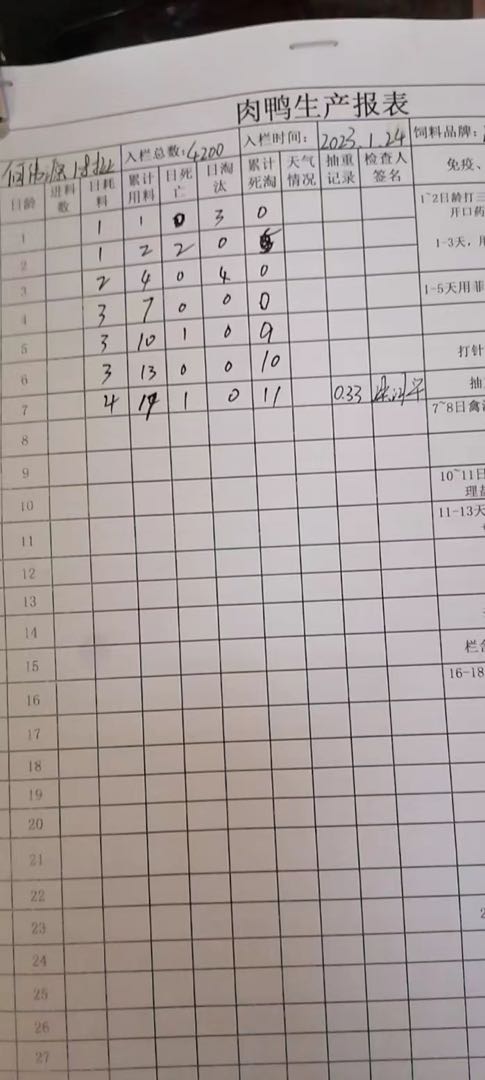 肉鸭生产报表
入栏总数:4200 入栏时间: 2023.1.24 饲料品牌:
日龄 进料数 日耗料 累计用料 日死亡 日淘汰 累计死淘 天气情况 抽重记录 检查人签名 免疫、
1 1 1 0 3 0 1~2日龄打三
开口药
2 1 2 2 0 1-3天,用
3 2 4 0 4 0 1-5天用菲
4 3 7 0 0 0
5 3 10 1 0 9 打针
6 3 13 0 0 10 抽
7 4 17 1 0 11 0.33 7~8日禽流
8
9 10~11日
10 理盐
11 11-13天
12
13
14
15 栏舍
16 16-18
17
18
19
20
21
22
23
24
25
26
27